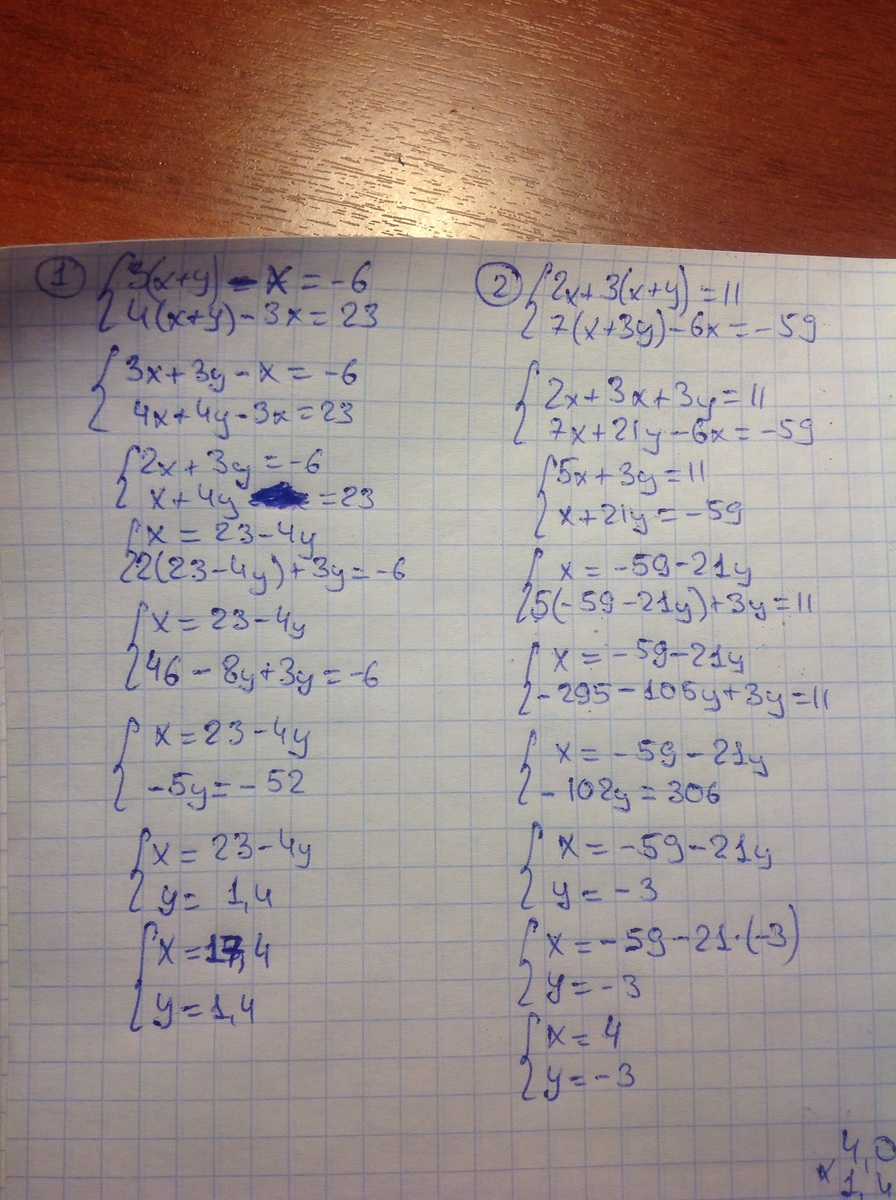 1 3(x+y) - x = -6
4(x+y) - 3x = 23
3x + 3y - x = -6
4x + 4y - 3x = 23
2x + 3y = -6
x + 4y = 23
x = 23 - 4y
2(23 - 4y) + 3y = -6
x = 23 - 4y
46 - 8y + 3y = -6
x = 23 - 4y
-5y = -52
x = 23 - 4y
y = 1,4
x = 17,4
y = 1,4
2 2x + 3(x+y) = 11
7(x+3y) - 6x = -59
2x + 3x + 3y = 11
7x + 21y - 6x = -59
5x + 3y = 11
x + 21y = -59
x = -59 - 21y
5(-59 - 21y) + 3y = 11
x = -59 - 21y
-295 - 105y + 3y = 11
x = -59 - 21y
-102y = 306
x = -59 - 21y
y = -3
x = -59 - 21·(-3)
y = -3
x = 4
y = -3
4,0
x 1,4